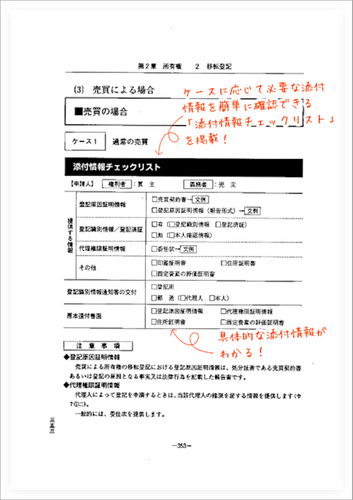 第2章 所有権 2 移転登記
(3) 売買による場合
ケースに応じて必要な添付
情報を簡単に確認できる
「添付情報チェックリスト」
を掲載！
■売買の場合
ケース1 通常の売買
添付情報チェックリスト
【申請人】 権利者：買主 義務者：売主
提供する情報
登記原因証明情報
□売買契約書→文例
□登記原因証明情報（報告形式）→文例
登記識別情報／登記済証
□有（□登記識別情報 □登記済証）
□無（□本人確認情報）
代理権限証明情報
□委任状→文例
その他
□印鑑証明書 □住所証明書
□固定資産の評価証明書
登記識別情報通知書の交付
□登記所
□郵送（□代理人 □本人）
原本還付書面
□登記原因証明情報 □代理権限証明情報
□住所証明書 □固定資産の評価証明書
具体的な添付情報が
わかる！
注意事項
◆登記原因証明情報
売買による所有権の移転登記における登記原因証明情報は、処分証書である売買契約書
あるいは登記の原因となる事実又は法律行為を記載した報告書です。
◆代理権限証明情報
代理人によって登記を申請するときは、当該代理人の権限を証する情報を提供します（令
7①二）。
一般的には、委任状を提供します。
－353－